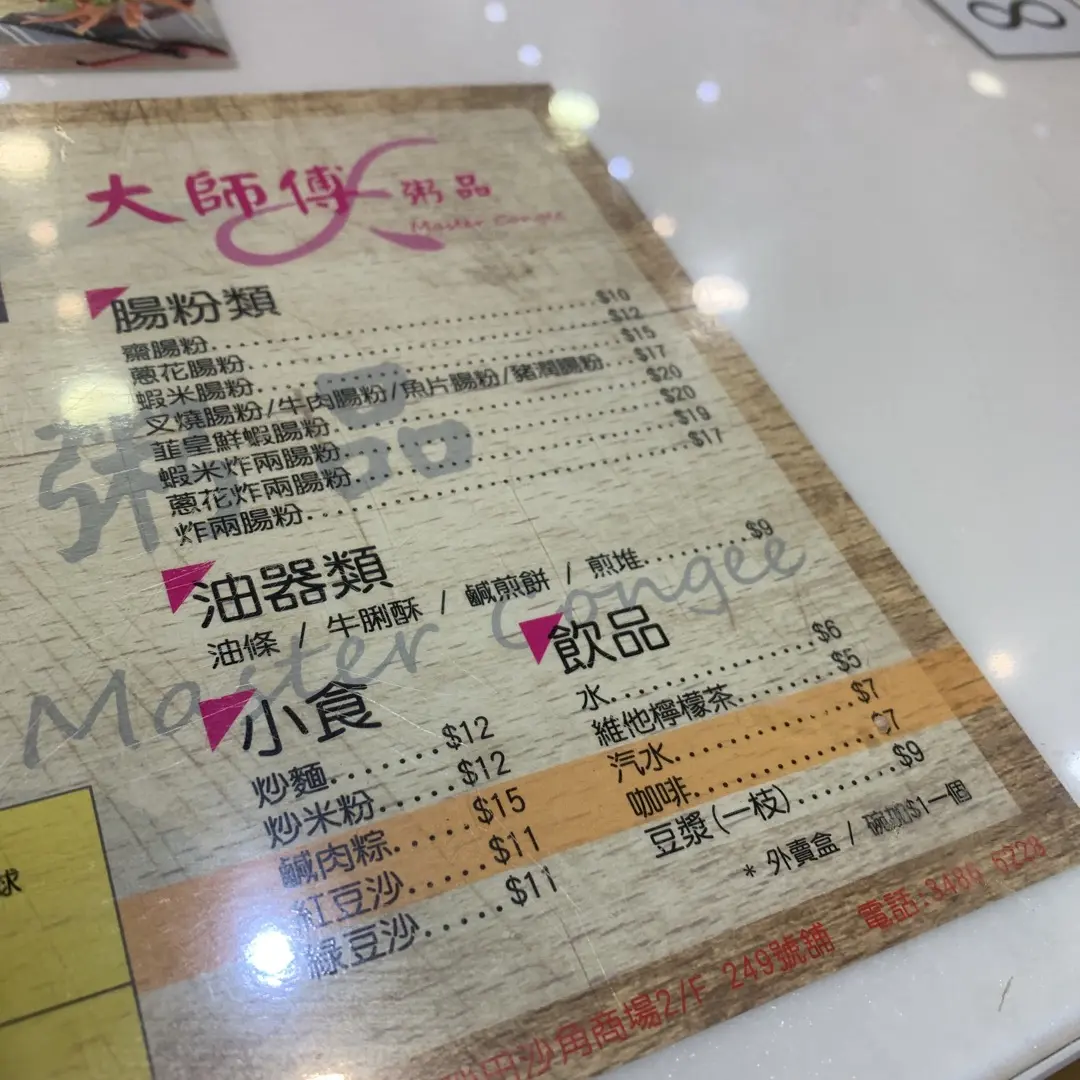 8
大師傅 粥品
Master Congee
腸粉類
齋腸粉..............................$10
蔥花腸粉..............................$12
蝦米腸粉..............................$15
叉燒腸粉/牛肉腸粉/魚片腸粉/豬潤腸粉...$17
韮皇鮮蝦腸粉..............................$20
蝦米炸兩腸粉..............................$20
蔥花炸兩腸粉..............................$19
炸兩腸粉..............................$17
粥品
Master Congee
油器類
油條 / 牛脷酥 / 鹹煎餅 / 煎堆.........$9
小食
炒麵.........$12
炒米粉.......$12
鹹肉粽.....$15
紅豆沙.....$11
綠豆沙.....$11
飲品
水...............$6
維他檸檬茶........$5
汽水..............$7
咖啡..............$7
豆漿(一枝).......$9
* 外賣盒 / 碗加$1一個
沙角商場2/F 249號舖 電話:3486 6228
球